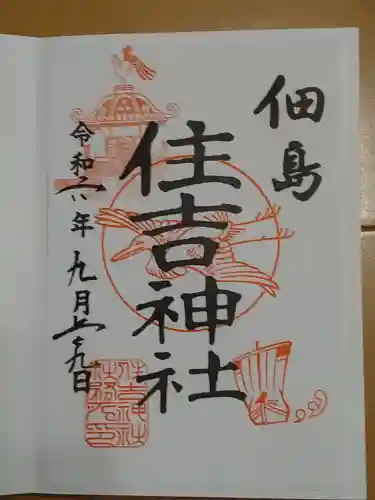 佃島
住吉神社
令和六年九月九日